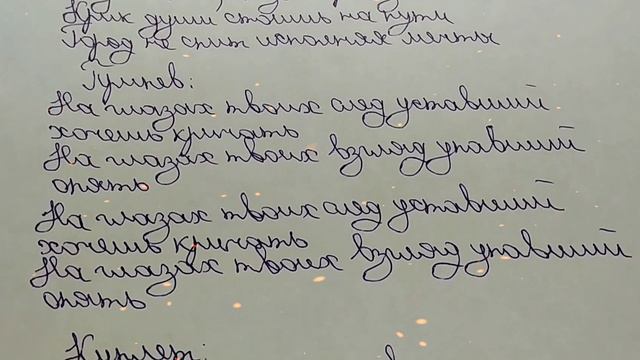 Крик души стоишь на пути
Город не спит исполняя мечты
Припев:
На глазах твоих след уставший
хочешь кричать
На глазах твоих взгляд упавший
опять
На глазах твоих след уставший
хочешь кричать
На глазах твоих взгляд упавший
опять
Куплет: